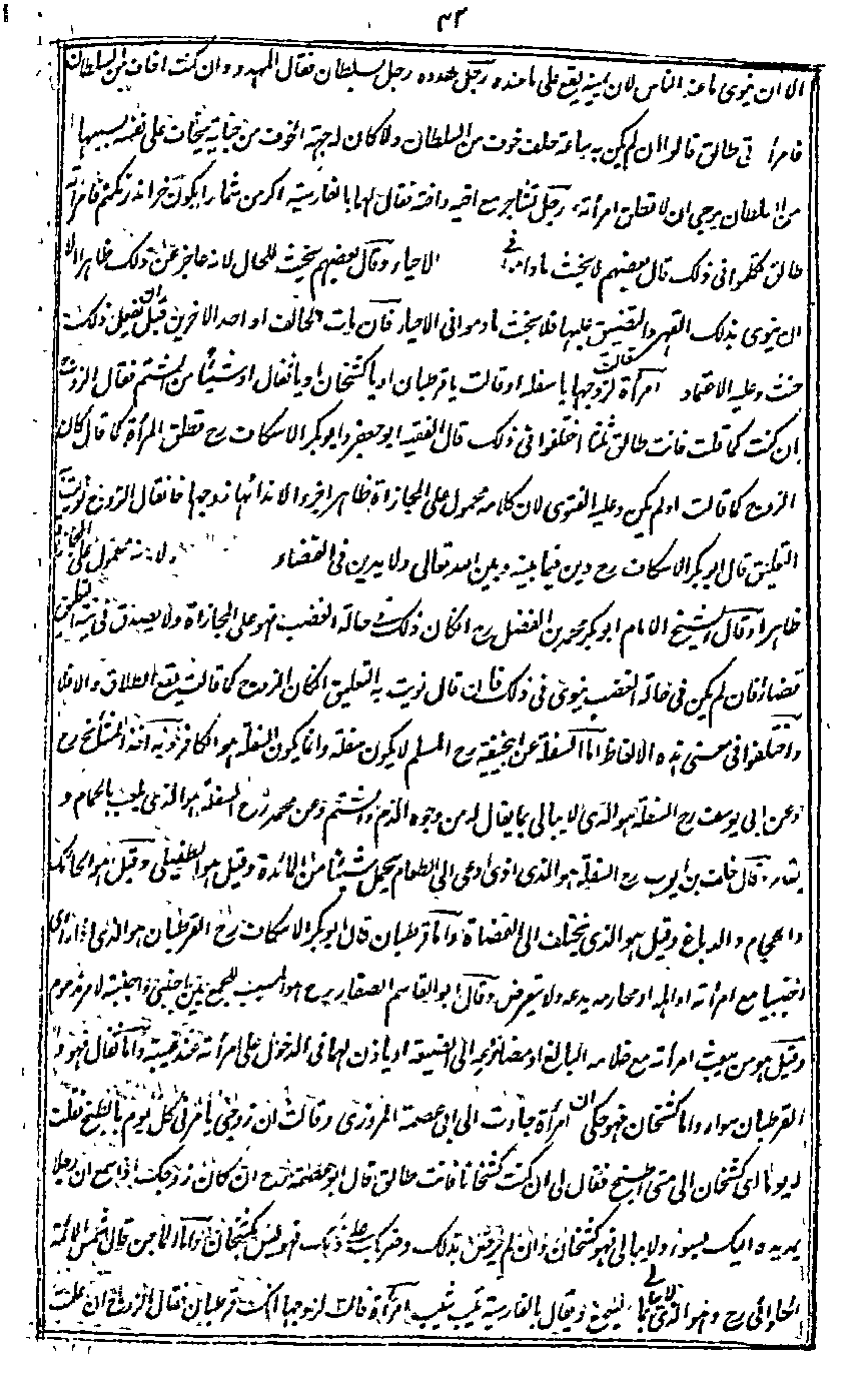 ٤٢
الا ان ينوى ما عند الناس لان يمينه يقع على ما عنده رجل هدده رجل بسلطان فقال المهدد وان كنت اخاف من السلطان
فامرأتى طالق قالوا ان لم يكن به ساعة حلف خوف من السلطان ولا كان له جهة الخوف من جناية يخاف على نفسه بسببها
من السلطان يرجى ان لا تطلق امرأته رجل تشاجر مع اخيه واخته فقال لهما بالفارسية اكر من شما را بكون خر اندر نكنم فامرأته
طالق تكلموا فى ذلك قال بعضهم لا يحنث ما داموا فى الاحياء وقال بعضهم يحنث للحال لانه عاجز عن ذلك ظاهرا الا
ان ينوى بذلك القهر والتضييق عليهما فلا يحنث ما داموا فى الاحياء فان مات الحالف او احد الاخرين قبل ان يفعل ذلك
حنث وعليه الاعتماد امرأة قالت لزوجها يا سفلة او قالت يا قرطبان او يا كشخان او يا نغال او شيئا من الشتم فقال الزوج
ان كنت كما قلت فانت طالق ثلثا اختلفوا فى ذلك قال الفقيه ابو جعفر وابو بكر الاسكاف رح تطلق المرأة كما قال كان
الزوج كما قالت او لم يكن وعليه الفتوى لان كلامه محمول على المجازاة ظاهرا جزاء لايذائها زوجها فان قال الزوج نويت
التعليق قال ابو بكر الاسكاف رح دين فيما بينه وبين الله تعالى ولا يدين فى القضاء لانه محمول على المجازاة
ظاهرا وقال الشيخ الامام ابو بكر محمد بن الفضل رح ان كان ذلك فى حالة الغضب فهو على المجازاة ولا يصدق فى نية التعليق
قضاء فان لم يكن فى حالة الغضب ينوى فى ذلك فان قال نويت به التعليق ان كان الزوج كما قالت يقع الطلاق والا فلا
واختلفوا فى معنى هذه الالفاظ اما السفلة عن ابى حنيفة رح المسلم لا يكون سفلة وانما يكون السفلة هو الكافر وبه اخذ المشائخ رح
وعن ابى يوسف رح السفلة هو الذى لا يبالى بما يقال له من وجوه الذم والشتم وعن محمد رح السفلة هو الذى يلعب بالحمام و
يقامر قال خلف بن ايوب رح السفلة هو الذى اذا دعى الى الطعام يحمل شيئا من المائدة وقيل هو الطفيلى وقيل هو الحائك
والحجام والدباغ وقيل هو الذى يختلف الى القضاة واما قرطبان قال ابو بكر الاسكاف رح القرطبان هو الذى اذا رأى
اجنبيا مع امرأته او اهله او محارمه يدعه ولا يتعرض وقال ابو القاسم الصفار رح هو المسبب للجمع بين اجنبى واجنبية لامر مذموم
وقيل هو من يبعث امرأته مع غلامه البالغ او مضاربه الى الضيعة او ياذن لهما فى الدخول على امرأته عند غيبته واما نغال فهو و
القرطبان سواء واما كشخان فهو حكى ان امرأة جاءت الى ابى عصمة المروزى وقالت ان زوجى يأمرنى كل يوم بالطبخ فقلت
له يوما اى كشخان الى متى اطبخ فقال لى ان كنت كشخانا فانت طالق قال ابو عصمة رح ان كان زوجك اذا سمع ان رجلا
يمد يده اليك بسوء ولا يبالى فهو كشخان وان لم يرض بذلك وضرك على ذلك فهو ليس بكشخان واما الماجن قال شمس الائمة
الحلوائى رح وهو الذى لا يبالى بما يسمع ويقال بالفارسية شيب امرأة قالت لزوجها انك قرطبان فقال الزوج ان علمت